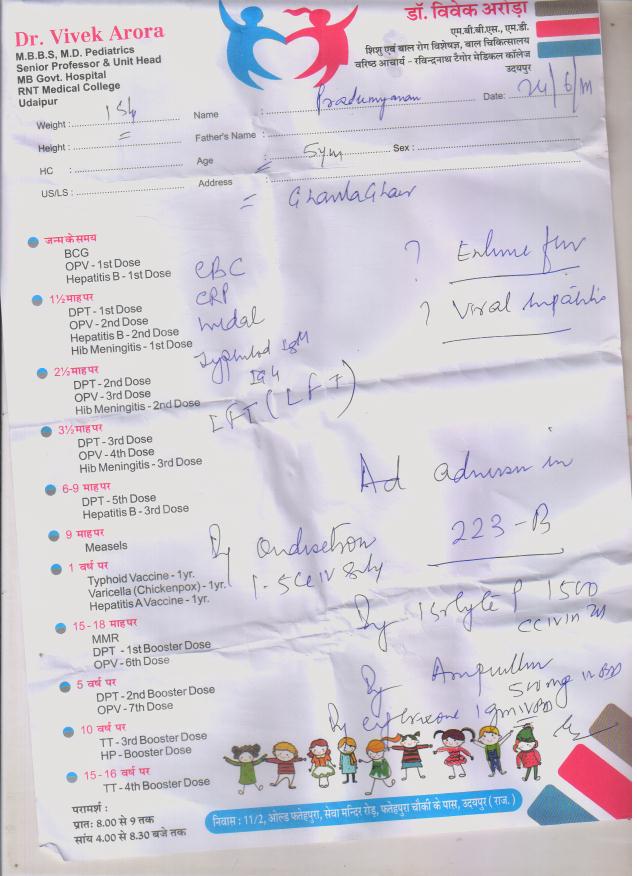 Dr. Vivek Arora
M.B.B.S, M.D. Pediatrics
Senior Professor & Unit Head
MB Govt. Hospital
RNT Medical College
Udaipur
डॉ. विवेक अरोड़ा
एम.बी.बी.एस., एम.डी.
शिशु एवं बाल रोग विशेषज्ञ, बाल चिकित्सालय
वरिष्ठ आचार्य - रविन्द्रनाथ टैगोर मेडिकल कॉलेज
उदयपुर
Weight : Name : Pradumyaman Date: 24/6/
Height : Father's Name :
HC : Age : 5 ym Sex :
US/LS : Address :
जन्म के समय
BCG
OPV - 1st Dose
Hepatitis B - 1st Dose
CBC
? Enteric fever
1½ माह पर
DPT - 1st Dose
OPV - 2nd Dose
Hepatitis B - 2nd Dose
Hib Meningitis - 1st Dose
CRP
widal
? Viral hepatitis
Typhidot IgM
IgG
2½ माह पर
DPT - 2nd Dose
OPV - 3rd Dose
Hib Meningitis - 2nd Dose
LFT (LFT)
3½ माह पर
DPT - 3rd Dose
OPV - 4th Dose
Hib Meningitis - 3rd Dose
Ad admission in
6-9 माह पर
DPT - 5th Dose
Hepatitis B - 3rd Dose
223-B
9 माह पर
Measels
Ondisetron
1 वर्ष पर
Typhoid Vaccine - 1yr.
Varicella (Chickenpox) - 1yr.
Hepatitis A Vaccine - 1yr.
1.5cc IV
Isolyte P 1500
cc IV in
15-18 माह पर
MMR
DPT - 1st Booster Dose
OPV - 6th Dose
5 वर्ष पर
DPT - 2nd Booster Dose
OPV - 7th Dose
500mg IV BD
1gm IV BD
10 वर्ष पर
TT - 3rd Booster Dose
HP - Booster Dose
15-16 वर्ष पर
TT - 4th Booster Dose
परामर्श :
प्रात: 8.00 से 9 तक
सांय 4.00 से 8.30 बजे तक
निवास : 11/2, ओल्ड फतेहपुरा, सेवा मन्दिर रोड़, फतेहपुरा चौकी के पास, उदयपुर ( राज. )